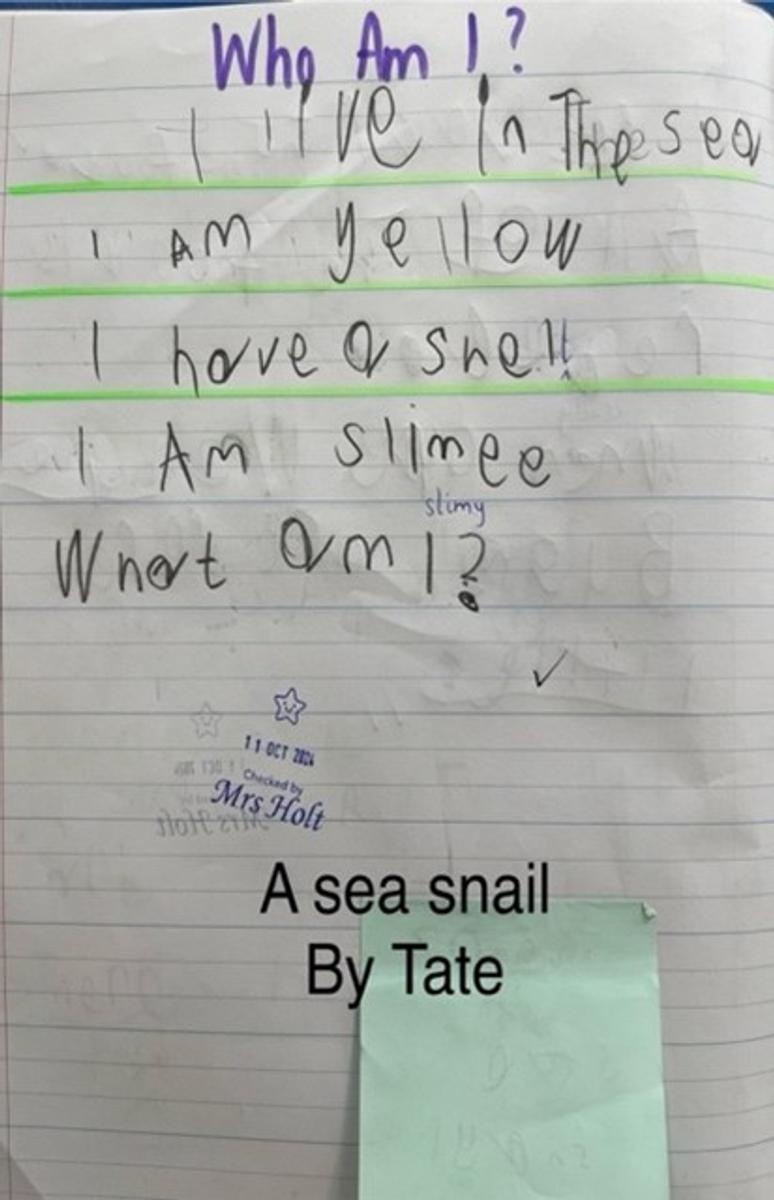 Who Am I?
I live in The sea
I AM yellow
I have a shell
I Am slimee
slimy
What am I?
11 OCT 2024
Checked by
Mrs Holt
A sea snail
By Tate